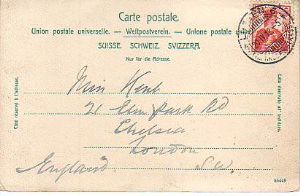 Carte postale.
Union postale universelle. — Weltpostverein. — Unione postale universale.
SUISSE. SCHWEIZ. SVIZZERA.
Nur für die Adresse.
Côté réservé à l'adresse.
Miss Kent
21 Elm Park Rd
Chelsea
London
England S.W.